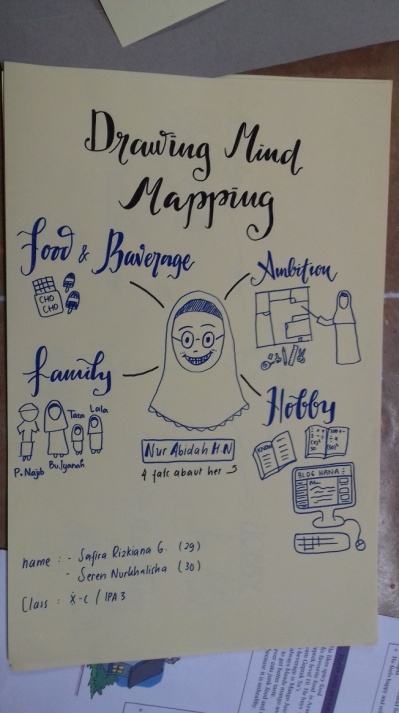 Drawing Mind
Mapping
Food & Baverage
CHO
CHO
Ambition
Family
Tara
Lala
P. Najib Bu. Iyanah
Nur Abidah H.N
4 fact about her
Hobby
KNOW
BLOG HANA :
name : - Safira Rizkiana G. (29)
- Seren Nurkhalisha (30)
Class : X-C / IPA 3